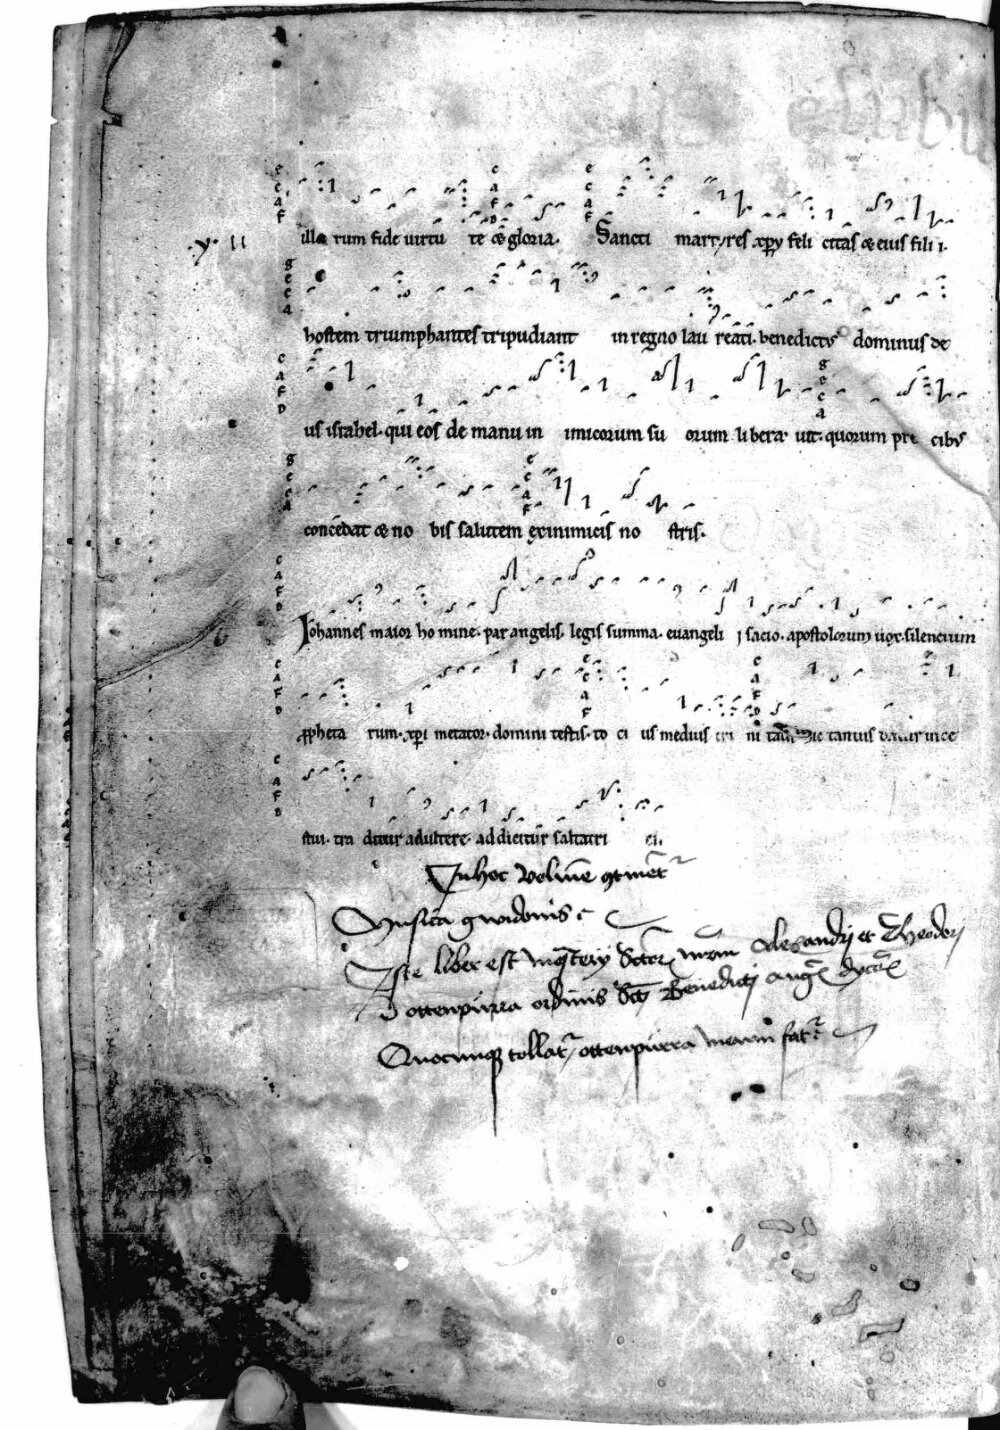 .y. II illarum fide uirtu te & gloria. Sancti martyres xpy feli citas & eius fili i.
hostem triumphantes tripudiant in regno lau reati. benedictus dominus de
us israhel. qui eos de manu in imicorum su orum libera uit. quorum pre cibus
concedat & no bis salutem ex inimicis no stris.
Iohannes maior homine. par angelis. legis summa. euangeli i sacio. apostolorum uox. silencium
propheta rum. xpi metator. domini testis. to ci us medius tri ni tatis. tantus datur ince
stui. tra ditur adultere. addicitur saltatri ci.
In hoc volumine
Musica gwidonis
Iste liber est Alexandrj et Theodorj
ottenpurra ordinis Benedictj
Quocunque ottenpurra